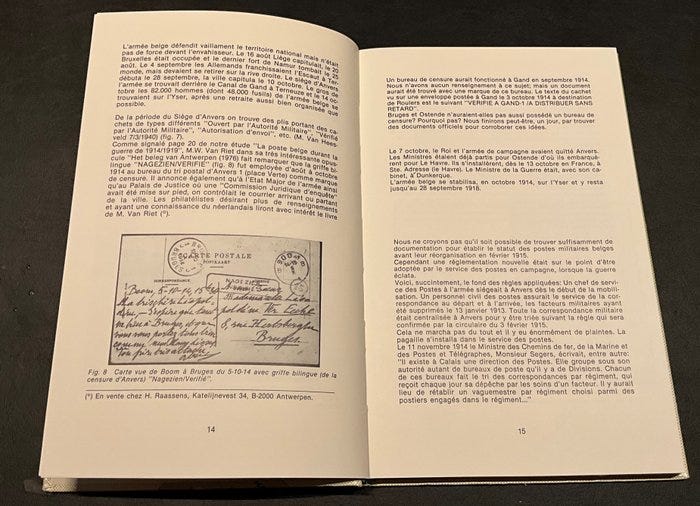 L'armée belge défendit vaillament le territoire national mais n'était
pas de force devant l'envahisseur. Le 16 août Liège capitulait, le 20
Bruxelles était occupée et le dernier fort de Namur tombait le 25
août. Le 4 septembre les Allemands franchissaient l'Escaut à Ter-
monde, mais devaient se retirer sur la rive droite. Le siège d'Anvers
débuta le 28 septembre, la ville capitula le 10 octobre. Le gros de
l'armée se trouvait derrière le Canal de Gand à Terneuze et le 14 oc-
tobre les 82.000 hommes (dont 48.000 fusils) de l'armée belge se
trouvaient sur l'Yser, après une retraite aussi bien organisée que
possible.
De la période du Siège d'Anvers on trouve des plis portant des ca-
chets de types différents "Ouvert par l'Autorité Militaire", "Vérifié
par l'Autorité Militaire", "Autorisation d'envoi", etc. (M. Van Hees-
veld 7/3/1940) (fig. 7).
Comme signalé page 20 de notre étude "La poste belge durant la
guerre de 1914/1919", M.W. Van Riet dans sa très intéressante opus-
cule "Het beleg van Antwerpen (1976) fait remarquer que la griffe bi-
lingue "NAGEZIEN/VERIFIE" (fig. 8) fut employée d'août à octobre
1914 au bureau du tri postal d'Anvers 1 (place Verte) comme marque
de censure. Il annonce également qu'à l'Etat Major de l'armée ainsi
qu'au Palais de Justice où une "Commission Juridique d'enquête"
avait été mise sur pied, on contrôlait le courrier arrivant ou partant
de la ville. Les philatélistes désirant plus de renseignements
et ayant une connaissance du néerlandais liront avec intérêt le livre
de M. Van Riet (⁹).
CARTE POSTALE
POSTKAART
CORRESPONDANCE
NAGEZIEN
BOOM
Boom, 5-10-14
Bruges.
Fig. 8 Carte vue de Boom à Bruges du 5-10-14 avec griffe bilingue (de la
censure d'Anvers) "Nagezien/Verifié".
(⁹) En vente chez H. Raassens, Katelijnevest 34, B-2000 Antwerpen.
14
Un bureau de censure aurait fonctionné à Gand en septembre 1914.
Nous n'avons aucun renseignement à ce sujet; mais un document
aurait été trouvé avec une marque de ce bureau. Le texte du cachet
vu sur une enveloppe postée à Gand le 3 octobre 1914 à destination
de Roulers est le suivant "VERIFIE A GAND-1 /A DISTRIBUER SANS
RETARD".
Bruges et Ostende n'auraient-elles pas aussi possédé un bureau de
censure? Pourquoi pas? Nous finirons peut-être, un jour, par trouver
des documents officiels pour corroborer ces idées.
Le 7 octobre, le Roi et l'armée de campagne avaient quitté Anvers.
Les Ministres étaient déjà partis pour Ostende d'où ils embarquè-
rent pour Le Havre. Ils s'installèrent, dès le 13 octobre en France, à
Ste. Adresse (le Havre). Le Ministre de la Guerre était, avec son ca-
binet, à Dunkerque.
L'armée belge se stabilisa, en octobre 1914, sur l'Yser et y resta
jusqu'au 28 septembre 1918.
Nous ne croyons pas qu'il soit possible de trouver suffisamment de
documentation pour établir le statut des postes militaires belges
avant leur réorganisation en février 1915.
Cependant une réglementation nouvelle était sur le point d'être
adoptée par le service des postes en campagne, lorsque la guerre
éclata.
Voici, succinctement, le fond des règles appliquées: Un chef de service
des Postes à l'armée siégeait à Anvers dès le début de la mobili-
sation. Un personnel civil des postes assurait le service de la cor-
respondance au départ et à l'arrivée, les facteurs militaires ayant
été supprimés le 13 janvier 1913. Toute la correspondance militaire
était centralisée à Anvers pour y être triée suivant la règle qui sera
confirmée par la circulaire du 3 février 1915.
Cela ne marcha pas du tout et il y eu énormément de plaintes. La
pagaille s'installa dans le service des postes.
Le 11 novembre 1914 le Ministre des Chemins de fer, de la Marine et
des Postes et Télégraphes, Monsieur Segers, écrivait, entre autre:
"Il existe à Calais une direction des Postes. Elle groupe sous son
autorité autant de bureaux de poste qu'il y a de Divisions. Chacun
de ces bureaux fait le tri des correspondances par régiment, qui
reçoit chaque jour sa dépêche par les soins d'un facteur. Il y aurait
lieu de rétablir un vaguemestre par régiment choisi parmi des
postiers engagés dans le régiment..."
15